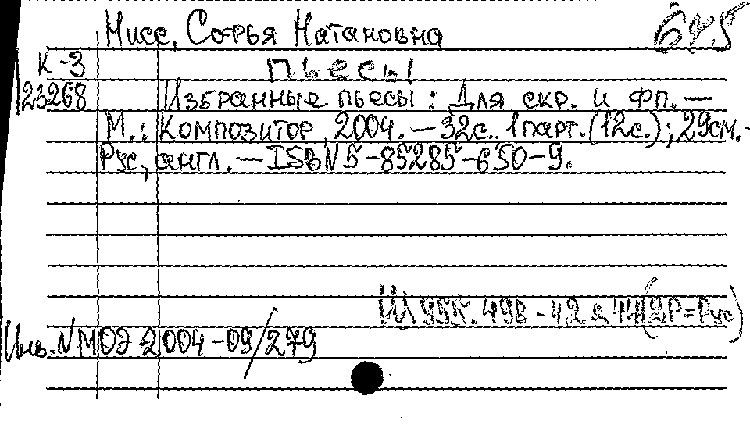 Мисс, Софья Натановна 645
К-3 ПЬЕСЫ
23268 Избранные пьесы: Для скр. и фп. —
М.: Композитор, 2004. — 32с. 1 парт. (12с.); 29см. -
Рус., англ. — ISBN 5-85285-650-9.
Инв. N МОЭ 2004-09/279